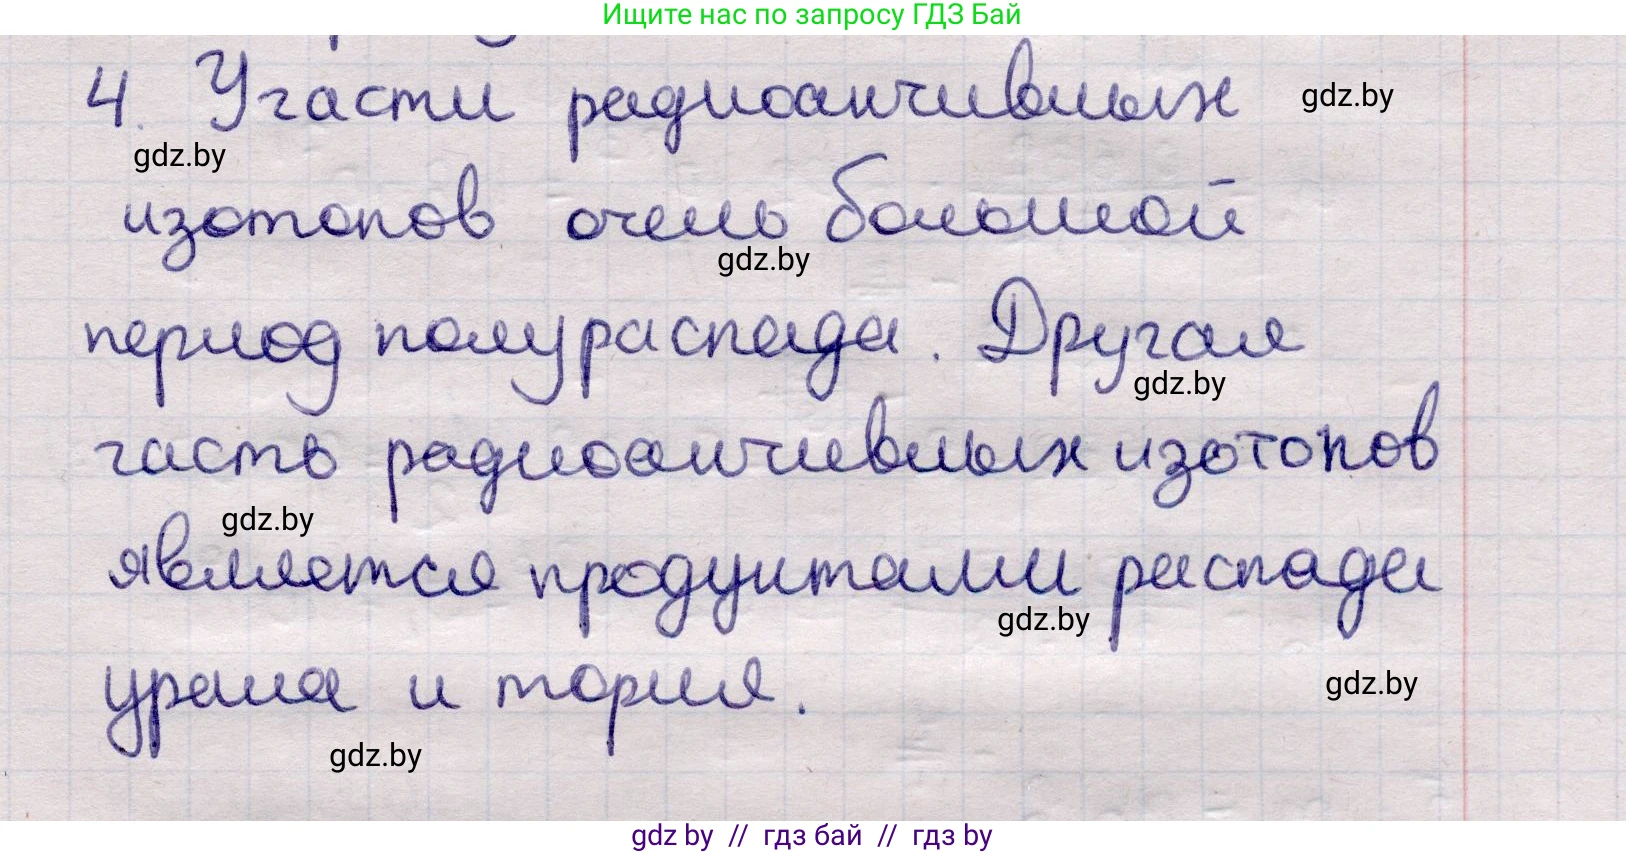 Ищите нас по запросу ГДЗ Бай
4. У части радиоактивных
gdz.by
gdz.by
изотопов очень большой
gdz.by
период полураспада. Другая
gdz.by
часть радиоактивных изотопов
gdz.by
является продуктами распада
gdz.by
урана и тория.
gdz.by
gdz.by
gdz by // гдз бай // гдз by